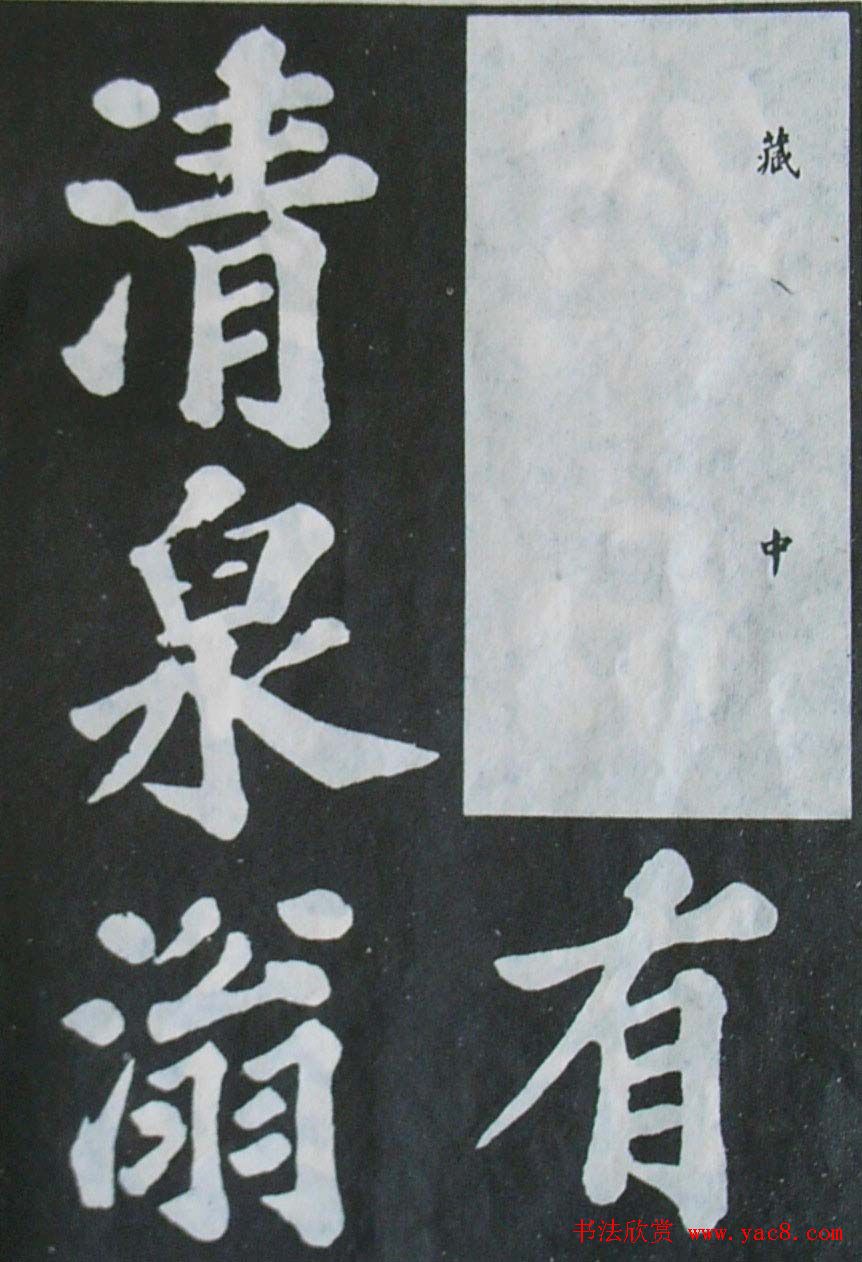 藏
中
有
清泉滃
书法欣赏 www.yac8.com